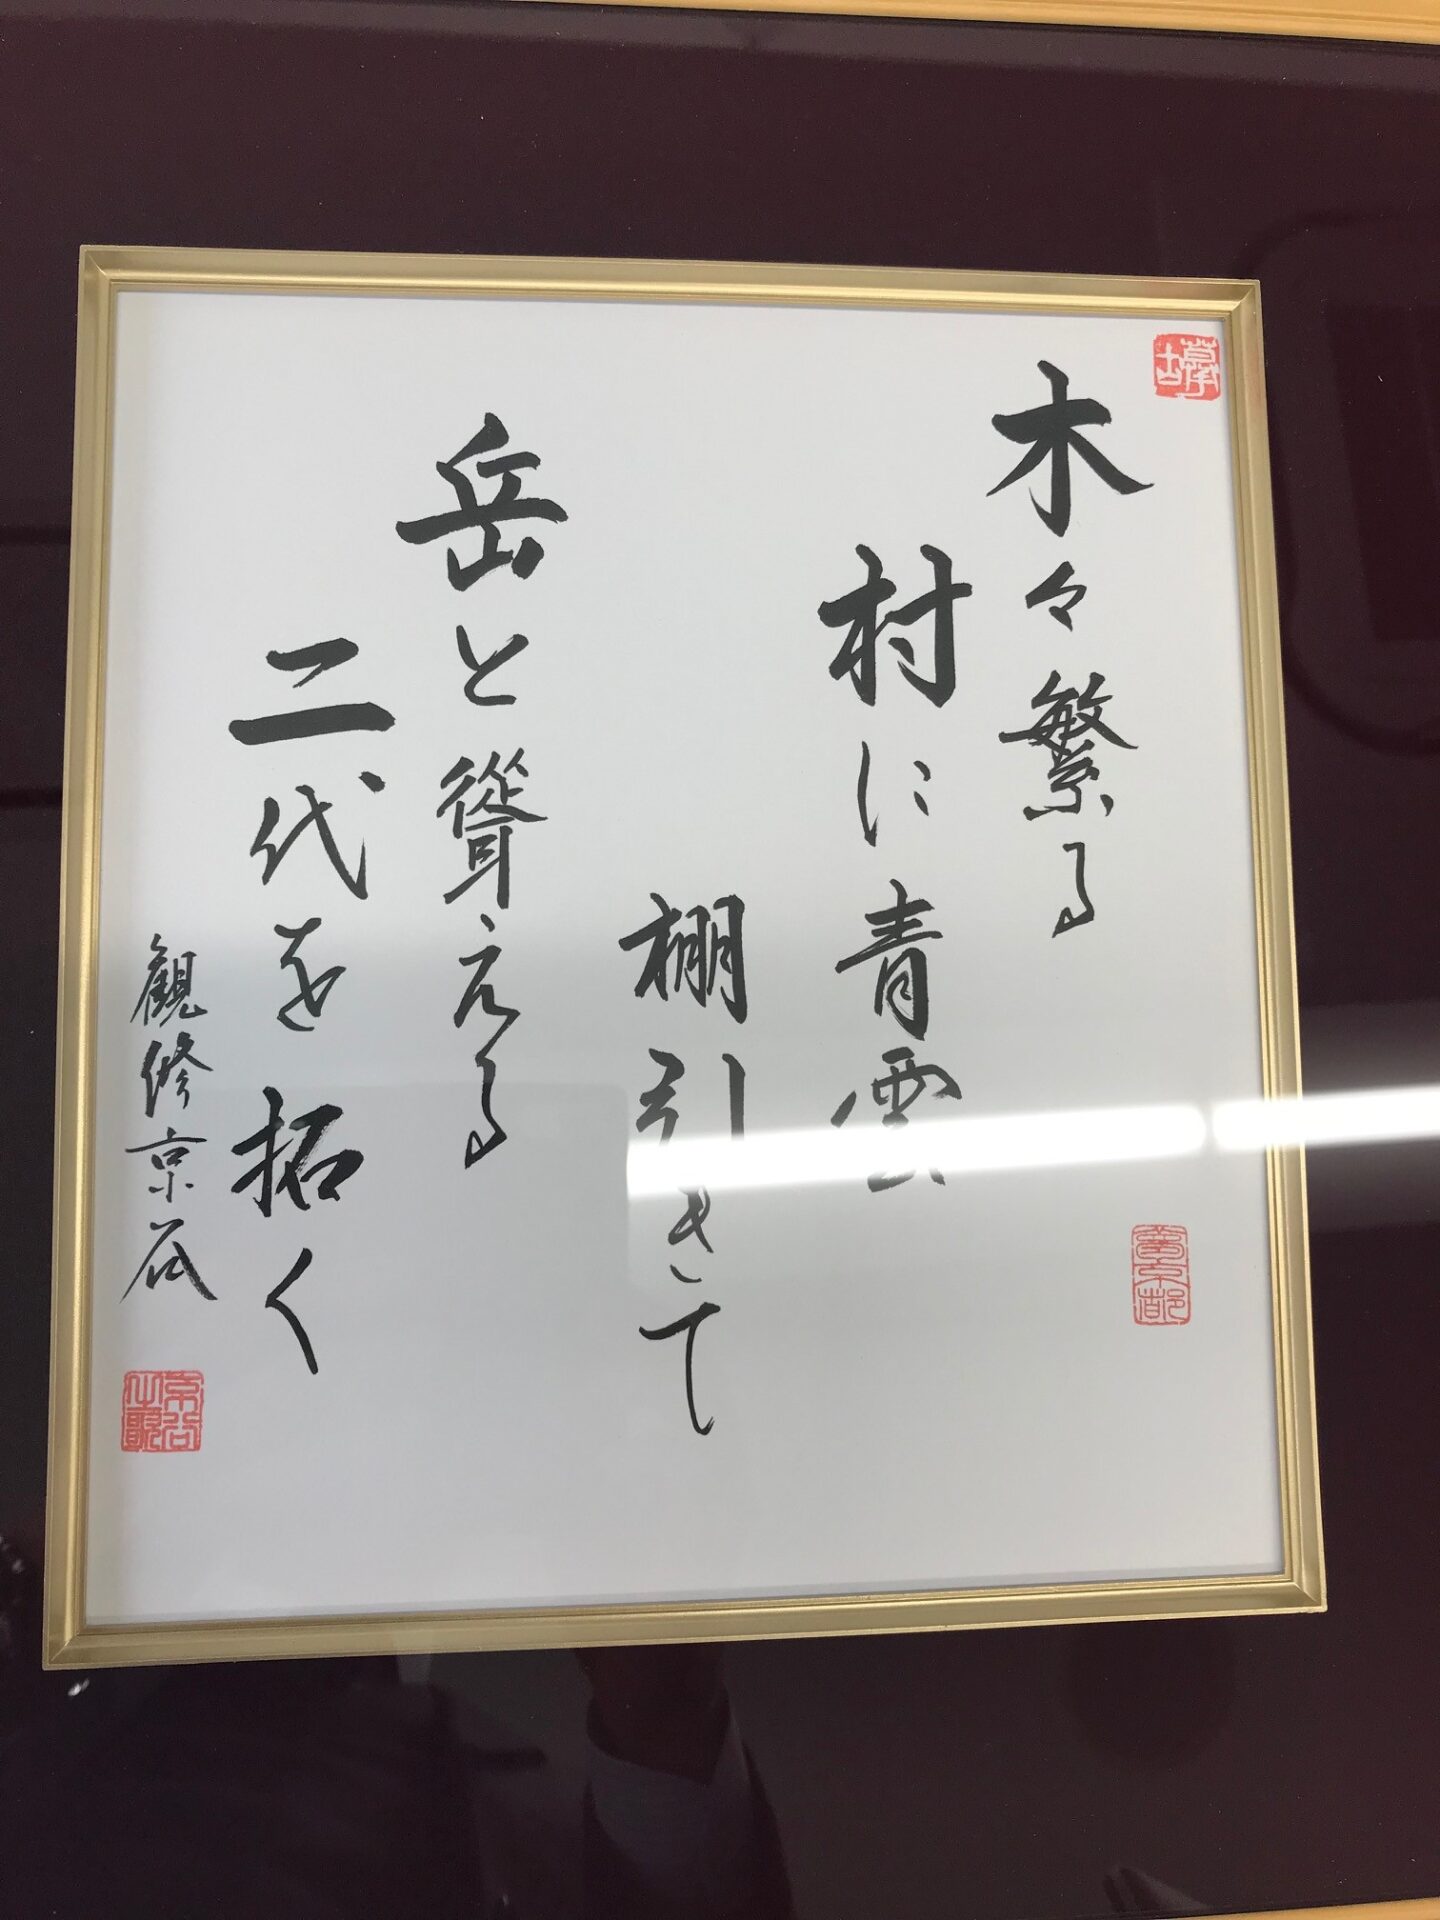 木々繁る
村に青雲
棚引きて
岳と聳える
二代を拓く
観修京